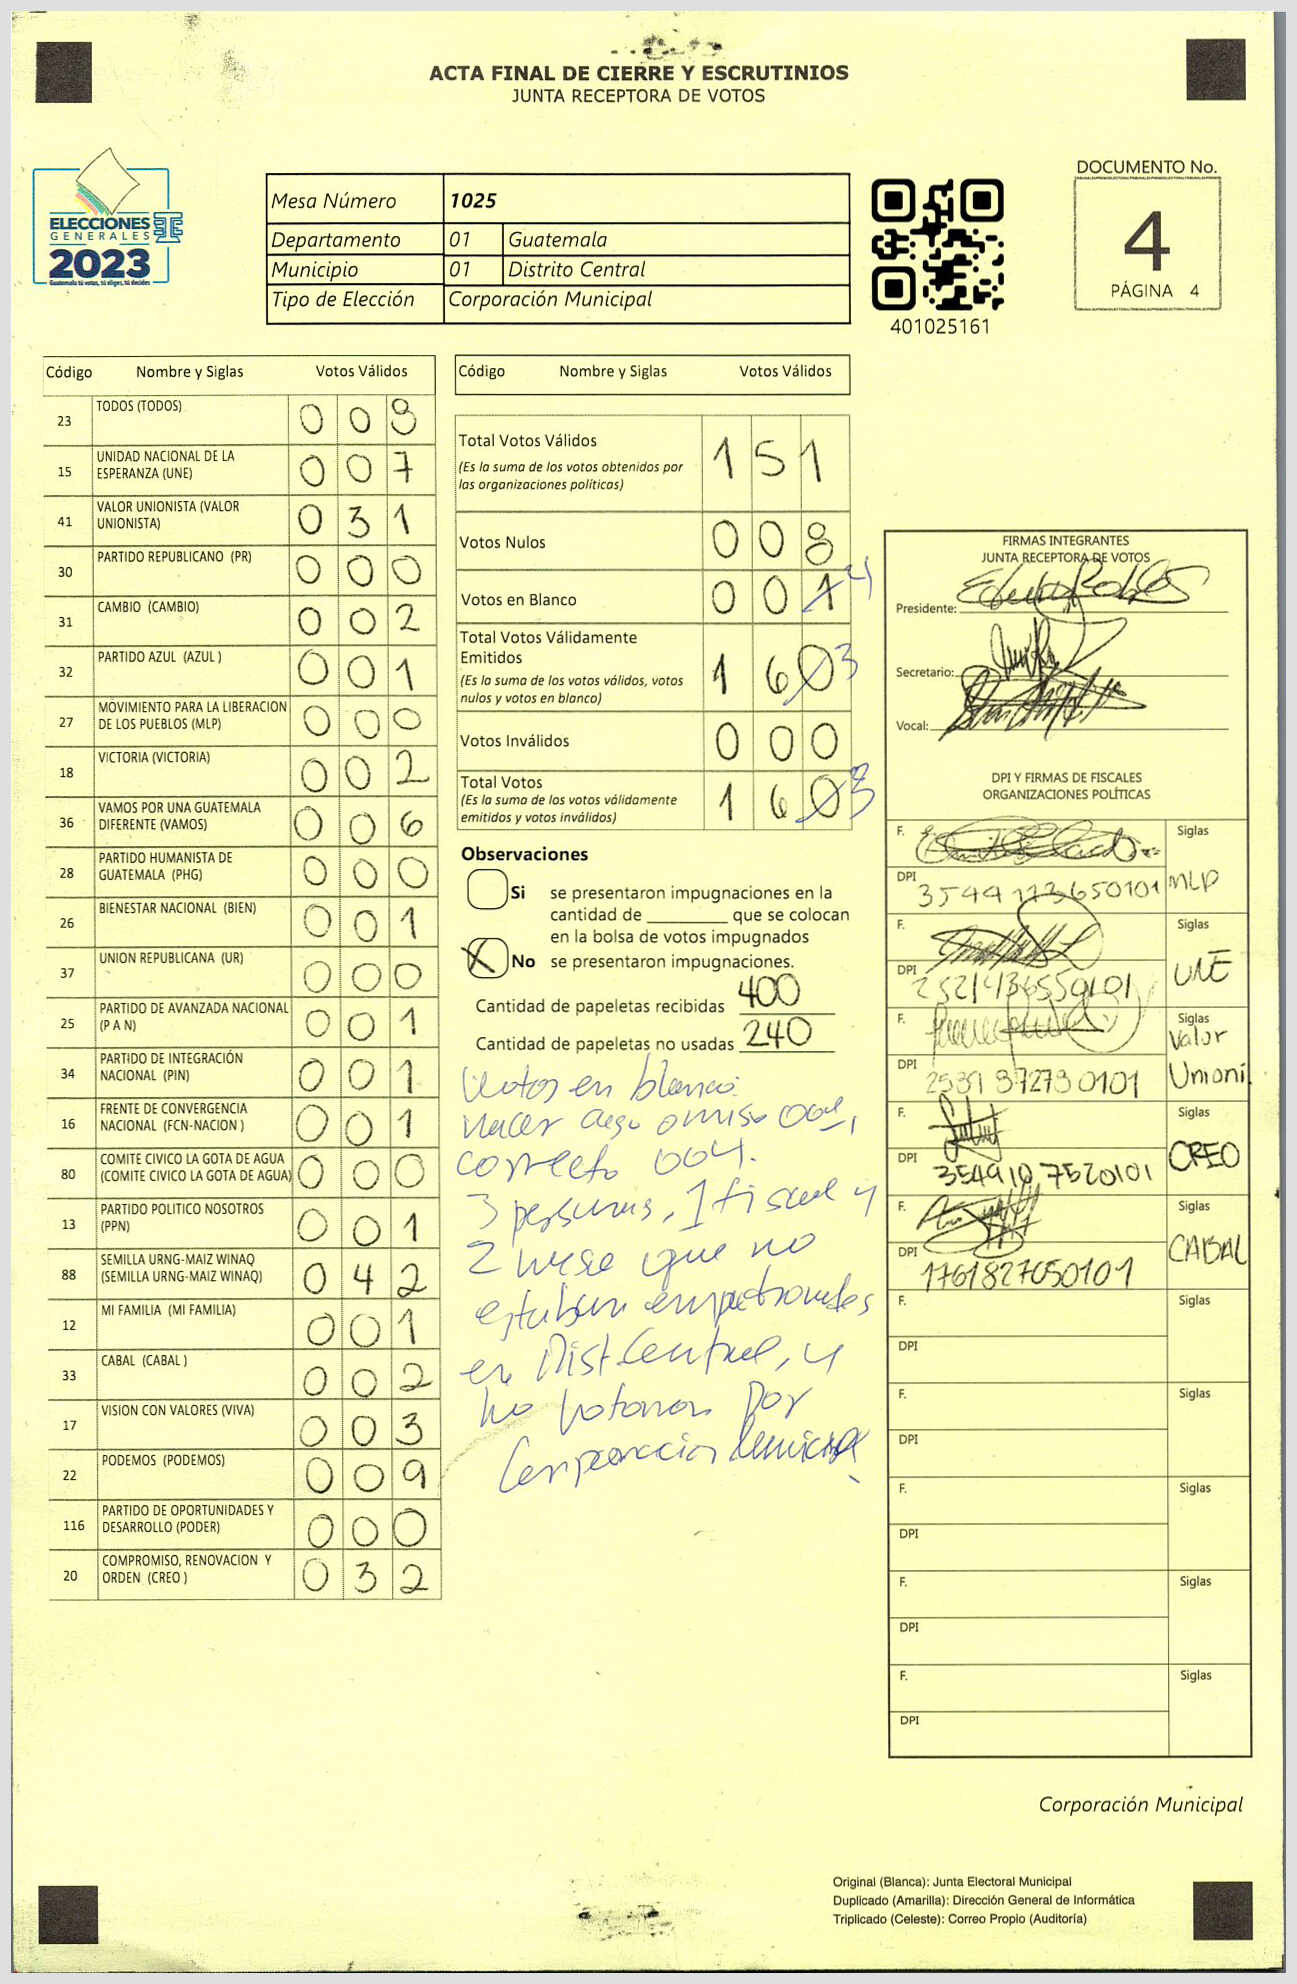 ACTA FINAL DE CIERRE Y ESCRUTINIOS
JUNTA RECEPTORA DE VOTOS
ELECCIONES
GENERALES
2023
Guatemala tú votas, tú eliges, tú decides
Mesa Número 1025
Departamento 01 Guatemala
Municipio 01 Distrito Central
Tipo de Elección Corporación Municipal
401025161
DOCUMENTO No.
4
PÁGINA 4
Código Nombre y Siglas Votos Válidos
23 TODOS (TODOS) 0 0 8
15 UNIDAD NACIONAL DE LA ESPERANZA (UNE) 0 0 7
41 VALOR UNIONISTA (VALOR UNIONISTA) 0 3 1
30 PARTIDO REPUBLICANO (PR) 0 0 0
31 CAMBIO (CAMBIO) 0 0 2
32 PARTIDO AZUL (AZUL ) 0 0 1
27 MOVIMIENTO PARA LA LIBERACION DE LOS PUEBLOS (MLP) 0 0 0
18 VICTORIA (VICTORIA) 0 0 2
36 VAMOS POR UNA GUATEMALA DIFERENTE (VAMOS) 0 0 6
28 PARTIDO HUMANISTA DE GUATEMALA (PHG) 0 0 0
26 BIENESTAR NACIONAL (BIEN) 0 0 1
37 UNION REPUBLICANA (UR) 0 0 0
25 PARTIDO DE AVANZADA NACIONAL (P A N) 0 0 1
34 PARTIDO DE INTEGRACIÓN NACIONAL (PIN) 0 0 1
16 FRENTE DE CONVERGENCIA NACIONAL (FCN-NACION ) 0 0 1
80 COMITE CIVICO LA GOTA DE AGUA (COMITE CIVICO LA GOTA DE AGUA) 0 0 0
13 PARTIDO POLITICO NOSOTROS (PPN) 0 0 1
88 SEMILLA URNG-MAIZ WINAQ (SEMILLA URNG-MAIZ WINAQ) 0 4 2
12 MI FAMILIA (MI FAMILIA) 0 0 1
33 CABAL (CABAL ) 0 0 2
17 VISION CON VALORES (VIVA) 0 0 3
22 PODEMOS (PODEMOS) 0 0 9
116 PARTIDO DE OPORTUNIDADES Y DESARROLLO (PODER) 0 0 0
20 COMPROMISO, RENOVACION Y ORDEN (CREO ) 0 3 2
Código Nombre y Siglas Votos Válidos
Total Votos Válidos 1 5 1
(Es la suma de los votos obtenidos por
las organizaciones políticas)
Votos Nulos 0 0 8
Votos en Blanco 0 0 1 4
Total Votos Válidamente
Emitidos 1 6 0 3
(Es la suma de los votos válidos, votos
nulos y votos en blanco)
Votos Inválidos 0 0 0
Total Votos 1 6 0 3
(Es la suma de los votos válidamente
emitidos y votos inválidos)
Observaciones
Si se presentaron impugnaciones en la
cantidad de ________ que se colocan
en la bolsa de votos impugnados
X No se presentaron impugnaciones.
Cantidad de papeletas recibidas 400
Cantidad de papeletas no usadas 240
Votos en blanco.
Hacer caso omiso 001,
correcto 004.
3 personas, 1 fiscal y
2 mesa que no
estaban empadronados
en Dist. Central, y
no votaron por
Corporacion Municipal
FIRMAS INTEGRANTES
JUNTA RECEPTORA DE VOTOS
Presidente:
Secretario:
Vocal:
DPI Y FIRMAS DE FISCALES
ORGANIZACIONES POLÍTICAS
F. Siglas
DPI 3544113650101 MLP
F. Siglas
DPI UNE
F. Siglas
DPI 2531 87273 0101 Valor Unioni
F. Siglas
DPI 354910 7520101 CREO
F. Siglas
DPI 1761827050101 CABAL
F. Siglas
DPI
F. Siglas
DPI
F. Siglas
DPI
F. Siglas
DPI
F. Siglas
DPI
Corporación Municipal
Original (Blanca): Junta Electoral Municipal
Duplicado (Amarilla): Dirección General de Informática
Triplicado (Celeste): Correo Propio (Auditoría)